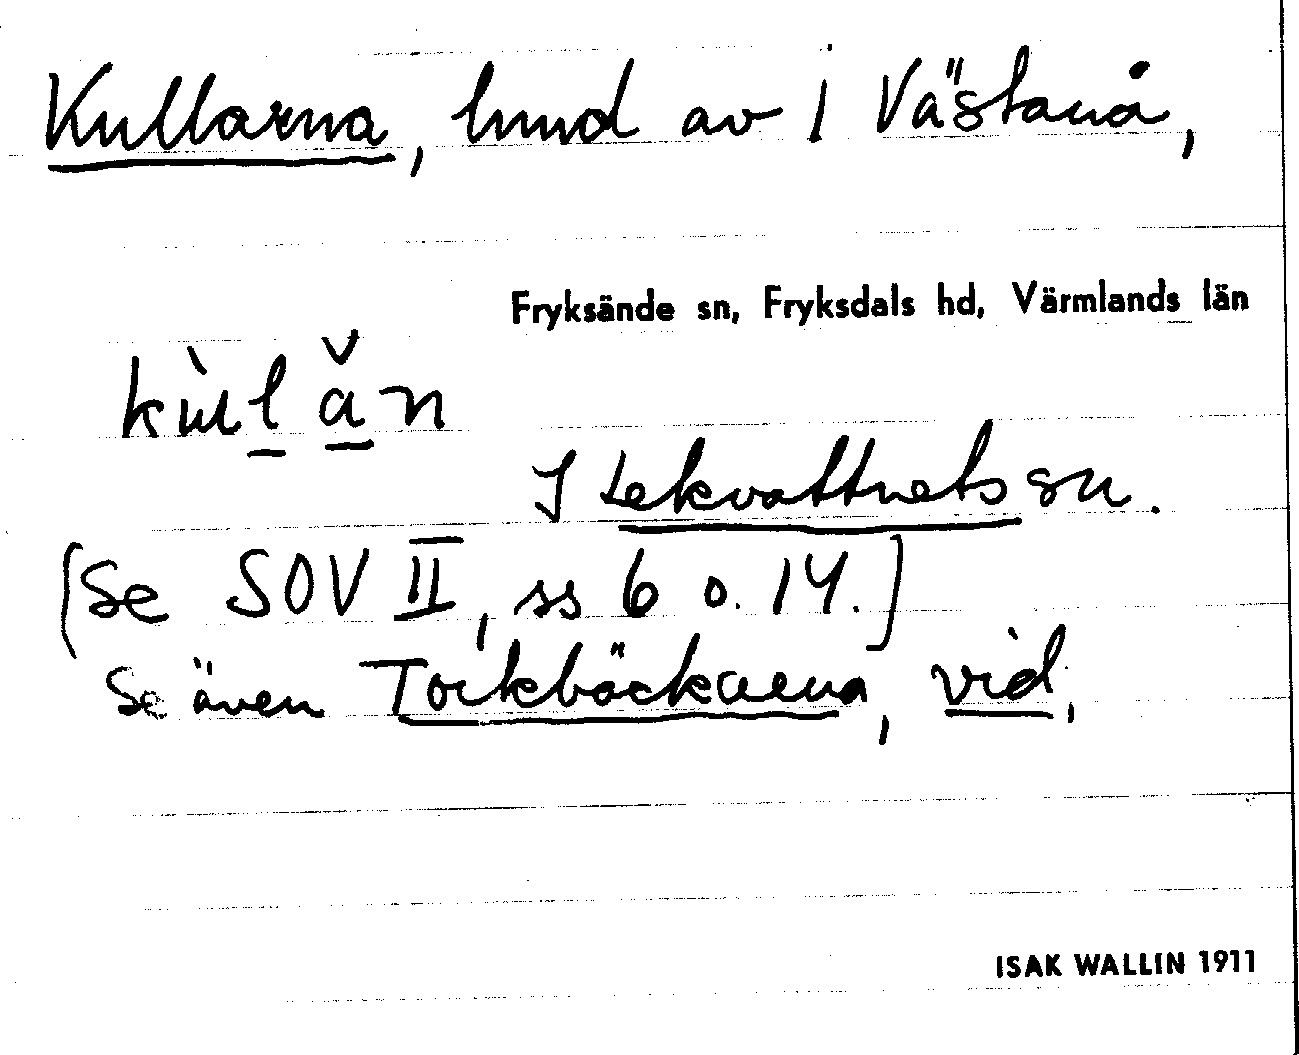 Kullarna, hmd av 1 Västanå,
Fryksände sn, Fryksdals hd, Värmlands län
kùl̠ ǎ̠n
I Lekvattnets sn.
[Se SOV II, ss 6 o. 14.]
Se även Torkbäckarna, vid.
ISAK WALLIN 1911